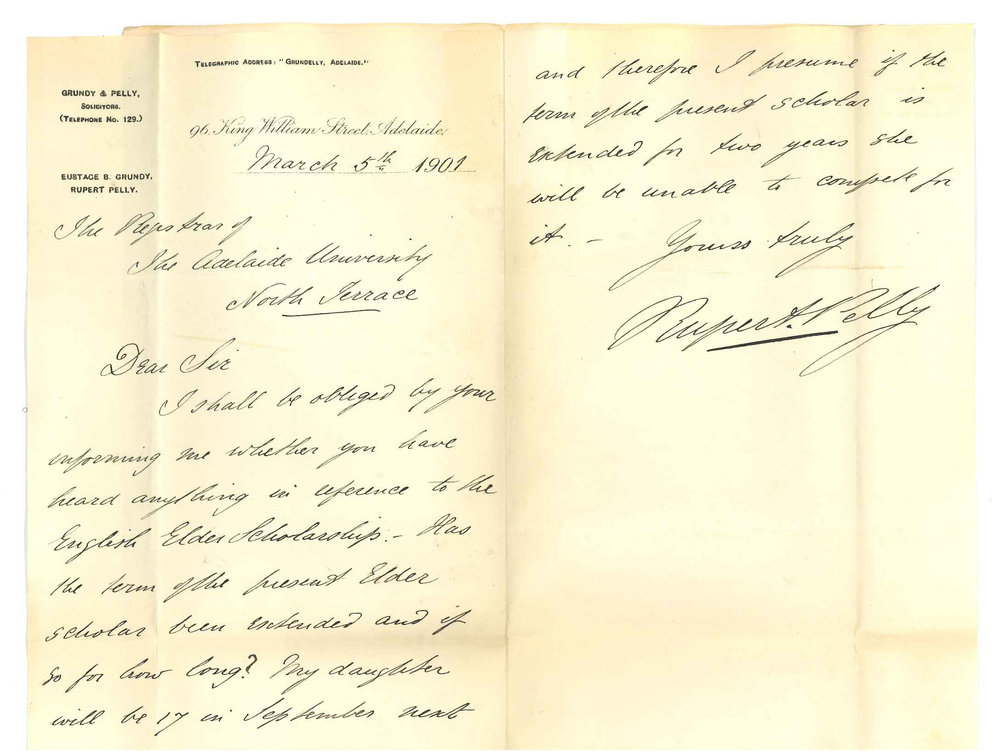 TELEGRAPHIC ADDRESS: "GRUNDELLY, ADELAIDE."
GRUNDY & PELLY,
SOLICITORS.
(TELEPHONE NO. 129.)
96, King William Street, Adelaide,
March 5th 1901
EUSTACE B. GRUNDY.
RUPERT PELLY.
The Registrar of
The Adelaide University
North Terrace
Dear Sir
I shall be obliged by your
informing me whether you have
heard anything in reference to the
English Elder Scholarship. – Has
the term of the present Elder
scholar been extended and if
so for how long? My daughter
will be 17 in September next
and therefore I presume if the
term of the present scholar is
extended for two years she
will be unable to compete for
it. –
Yours truly
Rupert Pelly